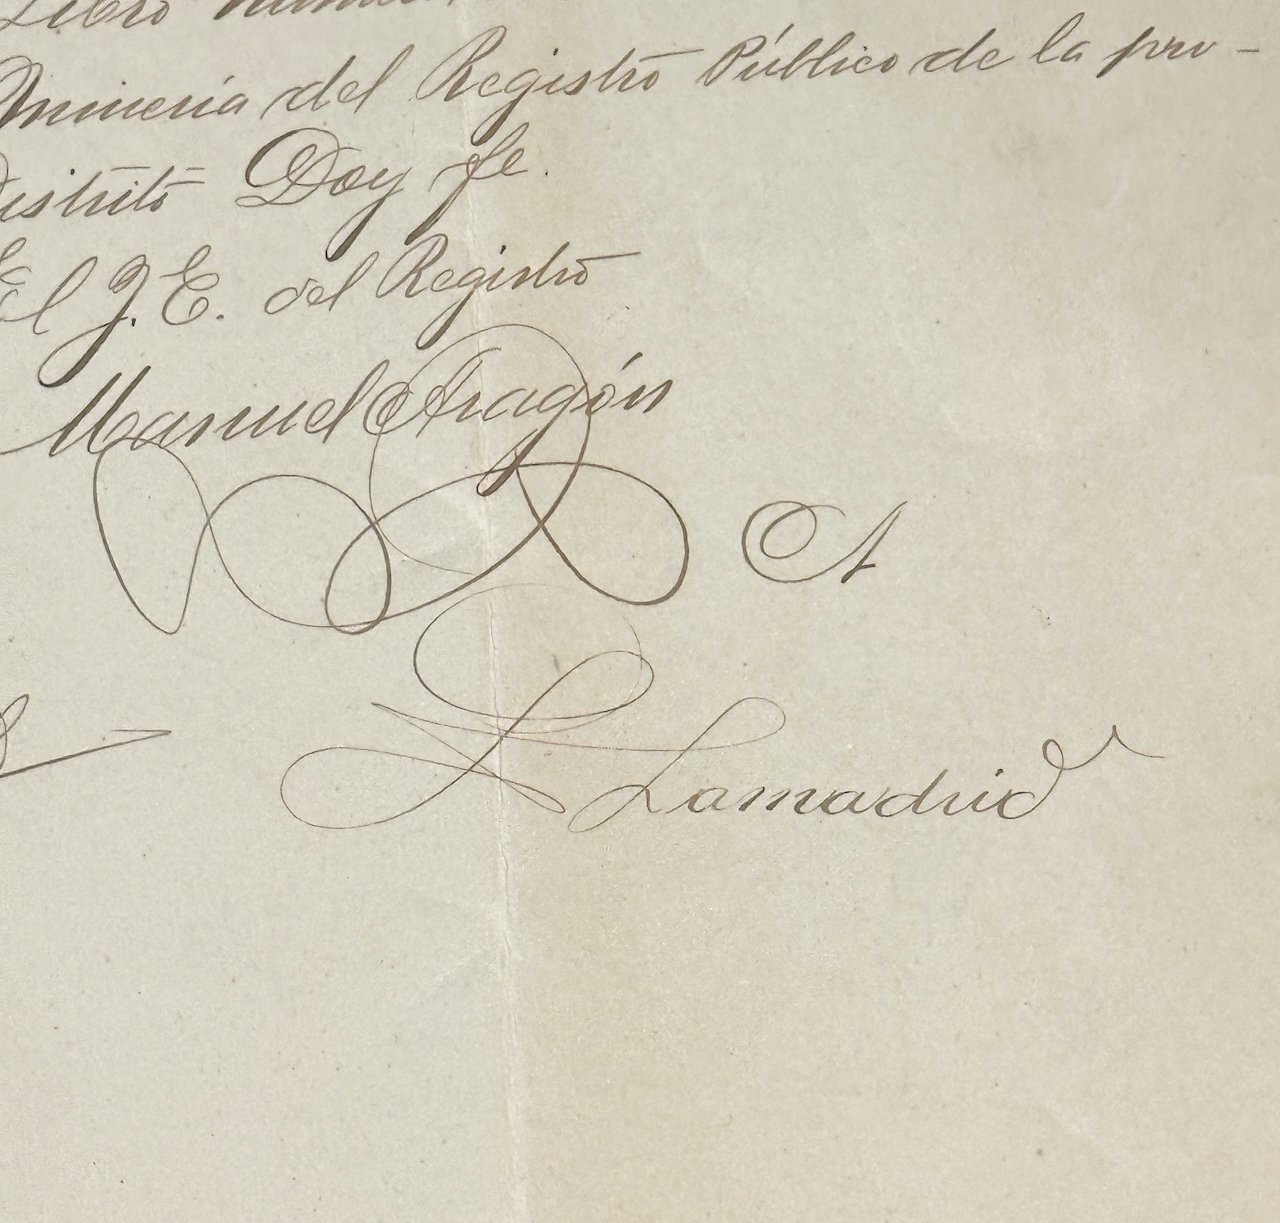 Libro
Minería del Registro Público de la pro-
Distrito Doy fe.
El J. E. del Registro
Manuel Aragón
A
Lamadrid